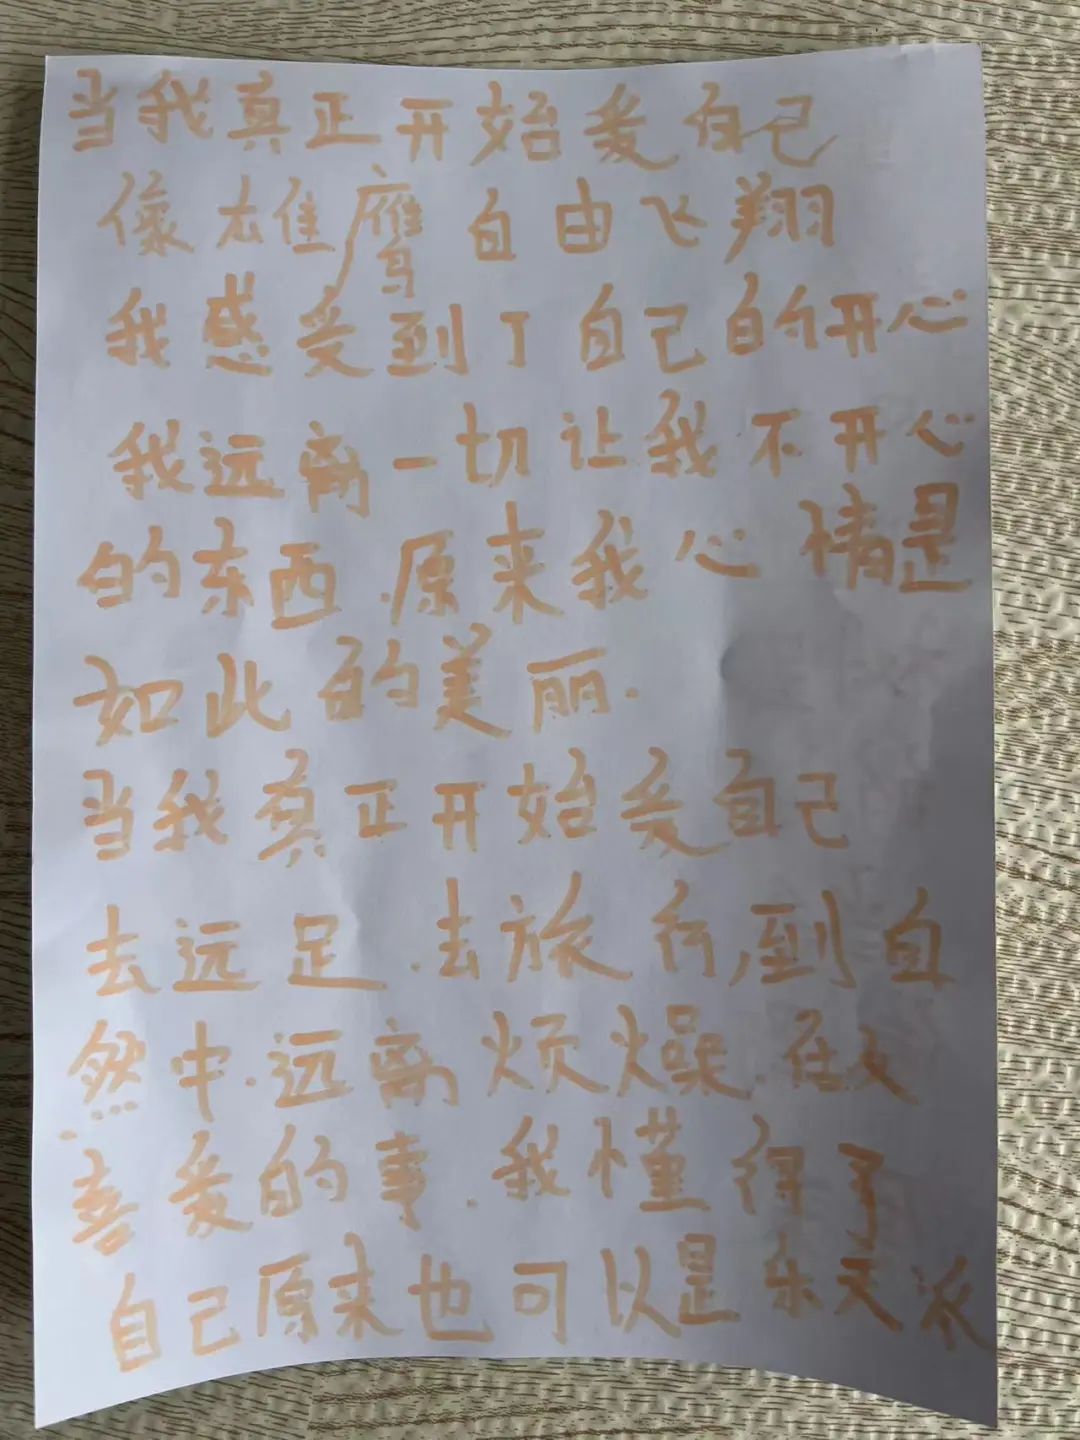 当我真正开始爱自己
像雄鹰自由飞翔
我感受到了自己的开心
我远离一切让我不开心
的东西.原来我心情是
如此的美丽.
当我真正开始爱自己
去远足.去旅行,到自
然中.远离烦燥.做
喜爱的事.我懂得了
自己原来也可以是乐天派